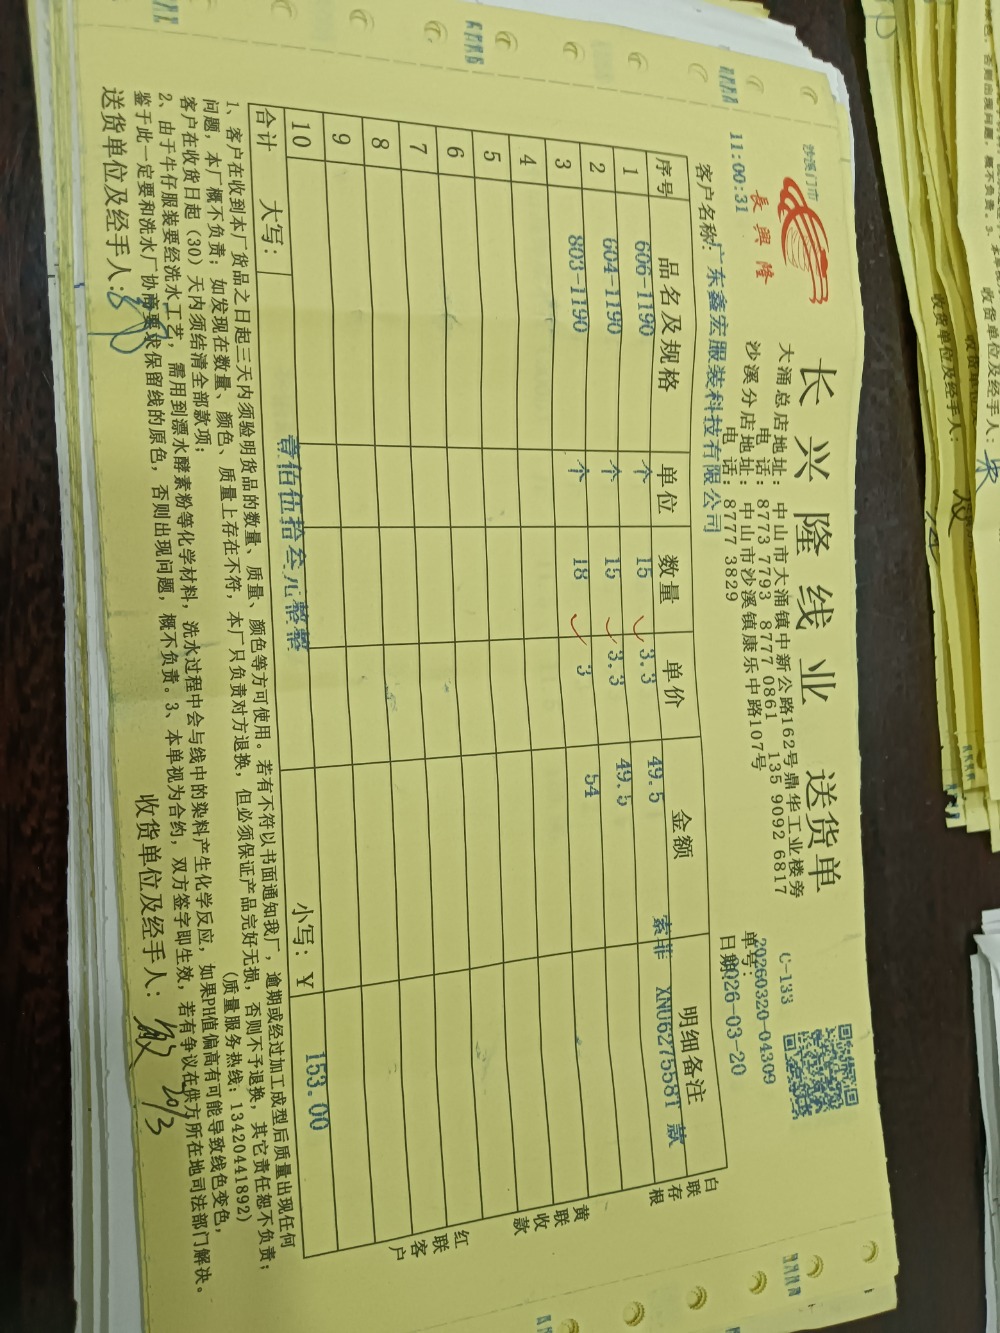 沙溪门市
長興隆
长兴隆线业 送货单
大涌总店地址: 中山市大涌镇中新公路162号鼎华工业楼旁
电 话: 8773 7793 8777 0861 135 9092 6817
沙溪分店地址: 中山市沙溪镇康乐中路107号
电 话: 8777 3829
C-133
单号: 20260320-04309
日期: 2026-03-20
11:00:31
客户名称: 广东鑫宏服装科技有限公司
序号 品名及规格 单位 数量 单价 金额 明细备注
1 606-1190 个 15 3.3 49.5 索菲 XNU627558T 款
2 604-1190 个 15 3.3 49.5
3 803-1190 个 18 3 54
4
5
6
7
8
9
10
合计 大写: 壹佰伍拾叁元整整 小写: ¥ 153.00
白联存根
黄联收款
红联客户
1、客户在收到本厂货品之日起三天内须验明货品的数量、质量、颜色等方可使用。若有不符以书面通知我厂，逾期或经过加工成型后质量出现任何
问题，本厂概不负责；如发现在数量、颜色、质量上存在不符，本厂只负责对方退换，但必须保证产品完好无损，否则不予退换，其它责任恕不负责；
客户在收货日起（30）天内须结清全部款项； (质量服务热线: 13420441892)
2、由于牛仔服装要经洗水工艺，需用到漂水酵素粉等化学材料，洗水过程中会与线中的染料产生化学反应，如果PH值偏高有可能导致线色变色，
鉴于此一定要和洗水厂协商要求保留线的原色，否则出现问题，概不负责。3、本单视为合约，双方签字即生效，若有争议在供方所在地司法部门解决。
送货单位及经手人:
收货单位及经手人: 20/3
收货单位及经手人:
收货单位及经手人: